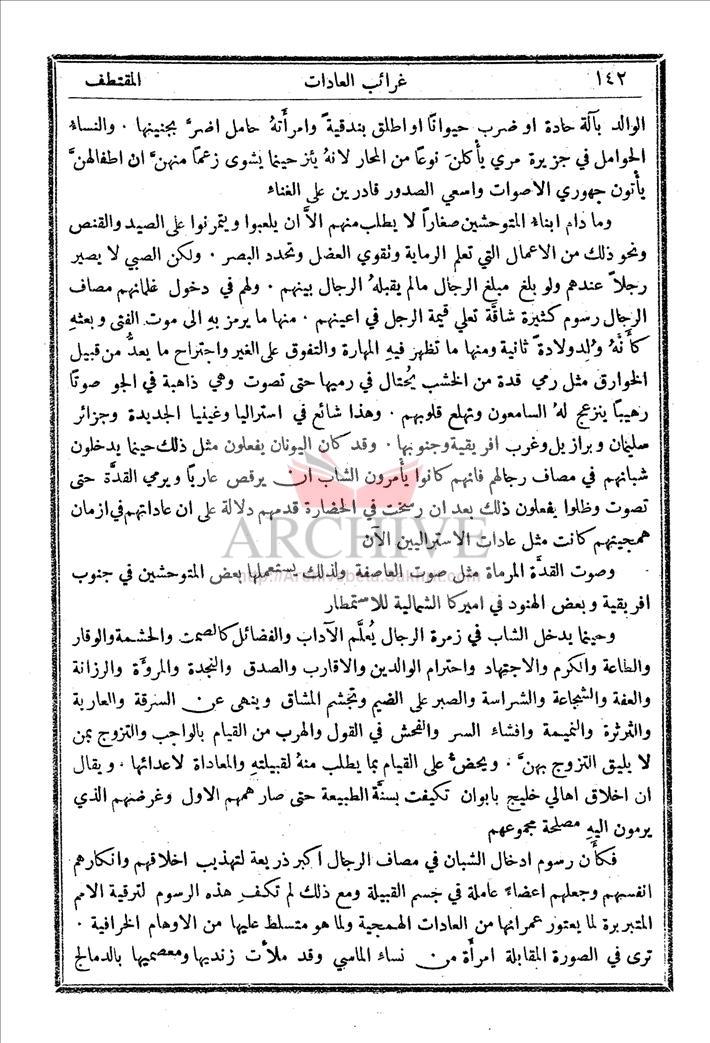 ١٤٢ غرائب العادات المقتطف
الوالد بآلة حادة او ضرب حيوانًا او اطلق بندقيةً وامرأتهُ حامل اضرَّ بجنينها . والنساءُ
الحوامل في جزيرة مري يأكلنَ نوعًا من المحار لانهُ يئز حينما يشوى زعمًا منهنَّ ان اطفالهنَّ
يأتون جهوري الاصوات واسعي الصدور قادرين على الغناء
وما دام ابناءُ المتوحشين صغارًا لا يطلب منهم الاَّ ان يلعبوا ويتمرنوا على الصيد والقنص
ونحو ذلك من الاعمال التي تعلم الرماية وتقوي العضل وتحدد البصر . ولكن الصبي لا يصير
رجلاً عندهم ولو بلغ مبلغ الرجال مالم يقبلهُ الرجال بينهم . ولهم في دخول غلمانهم مصاف
الرجال رسوم كثيرة شاقَّة تعلي قيمة الرجل في اعينهم . منها ما يرمز بهِ الى موت الفتى وبعثهِ
كأنَّهُ وُلد ولادةً ثانية ومنها ما تظهر فيهِ المهارة والتفوق على الغير واجتراح ما يعدُّ من قبيل
الخوارق مثل رمي قدة من الخشب يُحتال في رميها حتى تصوت وهي ذاهبة في الجو صوتًا
رهيبًا ينزعج لهُ السامعون وتهلع قلوبهم . وهذا شائع في استراليا وغينيا الجديدة وجزائر
سليمان وبرازيل وغرب افريقية وجنوبها . وقد كان اليونان يفعلون مثل ذلك حينما يدخلون
شبانهم في مصاف رجالهم فانهم كانوا يأمرون الشاب ان يرقص عاريًا ويرمي القدَّة حتى
تصوت وظلوا يفعلون ذلك بعد ان رسخت في الحضارة قدمهم دلالة على ان عاداتهم في ازمان
همجيتهم كانت مثل عادات الاستراليين الآن
ARCHIVE
وصوت القدَّة المرماة مثل صوت العاصفة ولذلك يستعملها بعض المتوحشين في جنوب
افريقية وبعض الهنود في اميركا الشمالية للاستمطار
وحينما يدخل الشاب في زمرة الرجال يُعلَّم الآداب والفضائل كالصمت والحشمة والوقار
والطاعة والكرم والاجتهاد واحترام الوالدين والاقارب والصدق والنجدة والمروَّة والرزانة
والعفة والشجاعة والشراسة والصبر على الضيم وتجشم المشاق وينهى عن السرقة والعاربة
والثرثرة والنميمة وافشاء السر والفحش في القول والهرب من القيام بالواجب والتزوج بمن
لا يليق التزوج بهنَّ . ويحضُّ على القيام بما يطلب منهُ لقبيلتهِ والمعاداة لاعدائها . ويقال
ان اخلاق اهالي خليج بابوان تكيفت بسنَّة الطبيعة حتى صار همهم الاول وغرضهم الذي
يرمون اليهِ مصلحة مجموعهم
فكأن رسوم ادخال الشبان في مصاف الرجال اكبر ذريعة لتهذيب اخلاقهم وانكارهم
انفسهم وجعلهم اعضاءً عاملة في جسم القبيلة ومع ذلك لم تكفِ هذه الرسوم لترقية الامم
المتبربرة لما يعتور عمرانها من العادات الهمجية ولما هو متسلط عليها من الاوهام الخرافية .
ترى في الصورة المقابلة امرأة من نساء الماسي وقد ملأت زنديها ومعصميها بالدمالج